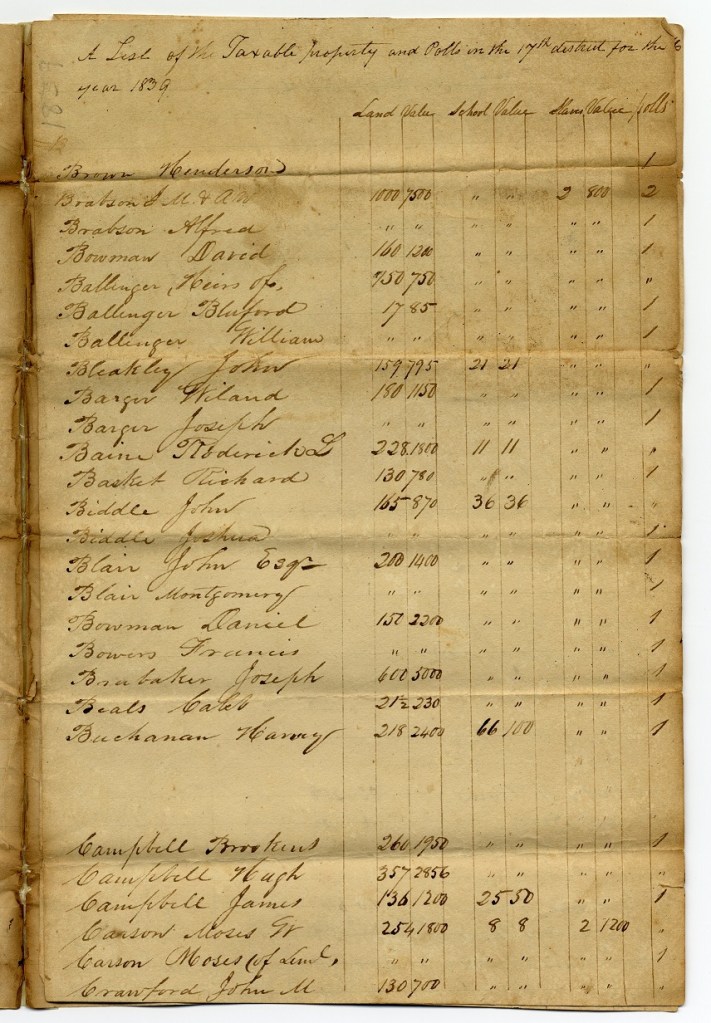 A List of the Taxable property and Polls in the 17th district for the
year 1839
Land Value School Value Slaves Value polls
B
Brown Henderson 1
Brabson J M. & A W 1000 7500 " " 2 800 2
Brabson Alfred " " " " " " 1
Bowman David 160 1200 " " " " 1
Ballinger, Heirs of, 750 750 " " " " "
Ballinger Bluford 17 85 " " " " 1
Ballinger William " " " " " " 1
Bleakley John 159 795 21 21 " " "
Barger Wiland 180 1150 " " " " 1
Barger Joseph " " " " " " 1
Baine Roderick L 228 1800 11 11 " " "
Basket Richard 130 780 " " " " 1
Biddle John 165 870 36 36 " " "
Biddle Joshua " " " " " " 1
Blair John Esqr 200 1400 " " " " 1
Blair Montgomery " " " " " " 1
Bowman Daniel 150 2200 " " " " 1
Bowers Francis " " " " " " 1
Brubaker Joseph 600 5000 " " " " 1
Beals Caleb 21½ 230 " " " " 1
Buchanan Harvey 218 2400 66 100 " " 1
Campbell Brookins 260 1950 " " " " 1
Campbell Hugh 357 2856 " " " " "
Campbell James 136 1200 25 50 " " 1
Carson Moses W 254 1800 8 8 2 1200 "
Carson Moses (of " " " " " " 1
Crawford John M 130 700 " " " " "